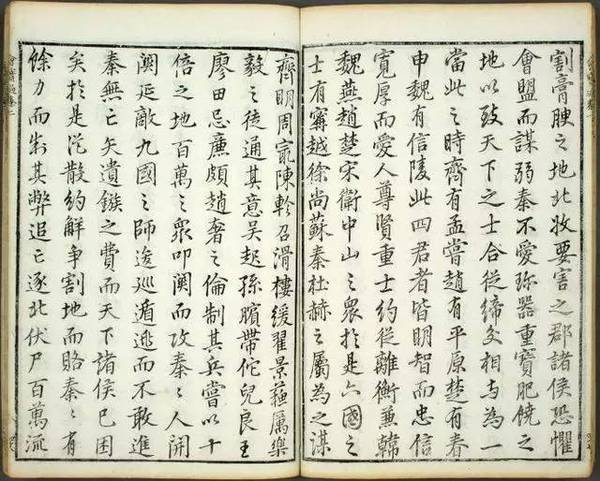 割膏腴之地北收要害之郡諸侯恐懼
會盟而謀弱秦不愛珎器重寶肥饒之
地以致天下之士合從締交相与為一
當此之時齊有孟嘗趙有平原楚有春
申魏有信陵此四君者皆明智而忠信
寬厚而愛人尊賢重士約從離衡兼韓
魏燕趙楚宋衛中山之衆於是六國之
士有甯越徐尚蘇秦杜赫之屬為之謀
齊明周㝡陳軫召滑樓緩翟景蘓厲樂
毅之徒通其意吴起孫臏帶佗兒良王
廖田忌廉頗趙奢之倫制其兵嘗以十
倍之地百萬之衆叩関而攻秦〻人開
関延敵九國之師逡巡遁逃而不敢進
秦無亡矢遺鏃之費而天下諸侯已困
矣於是從散約解争割地而賂秦〻有
餘力而制其弊追亡逐北伏尸百萬流